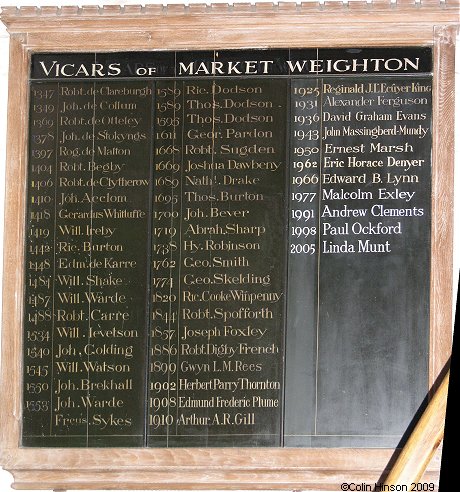 VICARS OF MARKET WEIGHTON
1347 Robt. de Clareburgh
1349 Joh. de Collum
1369 Robt. de Otteley
1378 Joh. de Stokyngs
1397 Rog. de Malton
1404 Robt. Begby
1406 Robt. de Clytherow
1410 Joh. Acclom
1418 Gerardus Whittuffe
1419 Will. Ireby
1442 Ric. Burton
1448 Edm. de Karre
1484 Will. Shake
1487 Will. Warde
1488 Robt. Carre
1534 Will. Jevetson
1540 Joh. Golding
1545 Will. Watson
1550 Joh. Brekhall
1553 Joh. Warde
Sykes
1589 Ric. Dodson
1589 Thos. Dodson
1595 Thos. Dodson
1611 Geor. Pardon
1668 Robt. Sugden
1669 Joshua Dawbeny
1689 Nath. Drake
1695 Thos. Burton
1700 Joh. Bever
1719 Abrah. Sharp
1738 Hy. Robinson
1762 Geo. Smith
1774 Geo. Skelding
1820 Ric. Cooke Winpenny
1844 Robt. Spofforth
1857 Joseph Foxley
1886 Robt. Digby French
1899 Gwyn L.M. Rees
1902 Herbert Parry Thornton
1908 Edmund Frederic Plume
1910 Arthur A.R. Gill
1925 Reginald J.T. Ecuyer King
1931 Alexander Ferguson
1936 David Graham Evans
1943 John Massingberd-Mundy
1950 Ernest Marsh
1962 Eric Horace Denyer
1966 Edward B. Lynn
1977 Malcolm Exley
1991 Andrew Clements
1998 Paul Ockford
2005 Linda Munt
©Colin Hinson 2009